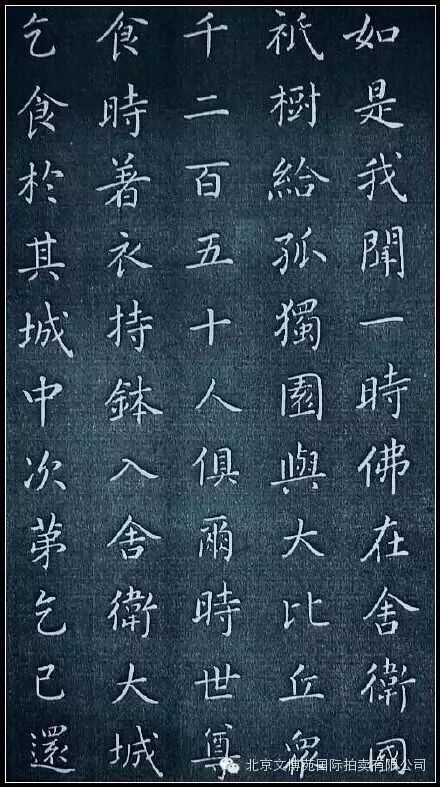 如是我聞一時佛在舍衛國
祇樹給孤獨園與大比丘衆
千二百五十人俱爾時世尊
食時著衣持鉢入舍衛大城
乞食於其城中次第乞已還
北京文博苑国际拍卖有限公司